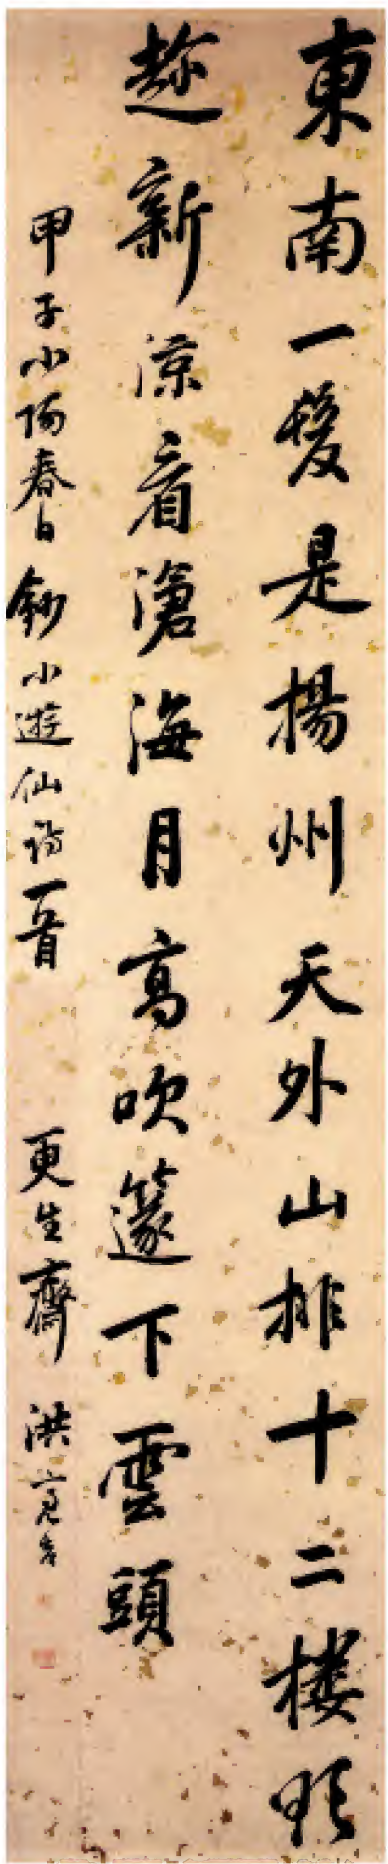 東南一髮是揚州天外山排十二樓欲
趂新涼看滄海月高吹篴下雲頭
甲子小陽春日鈔小遊仙詩一首 更生齋 洪亮吉